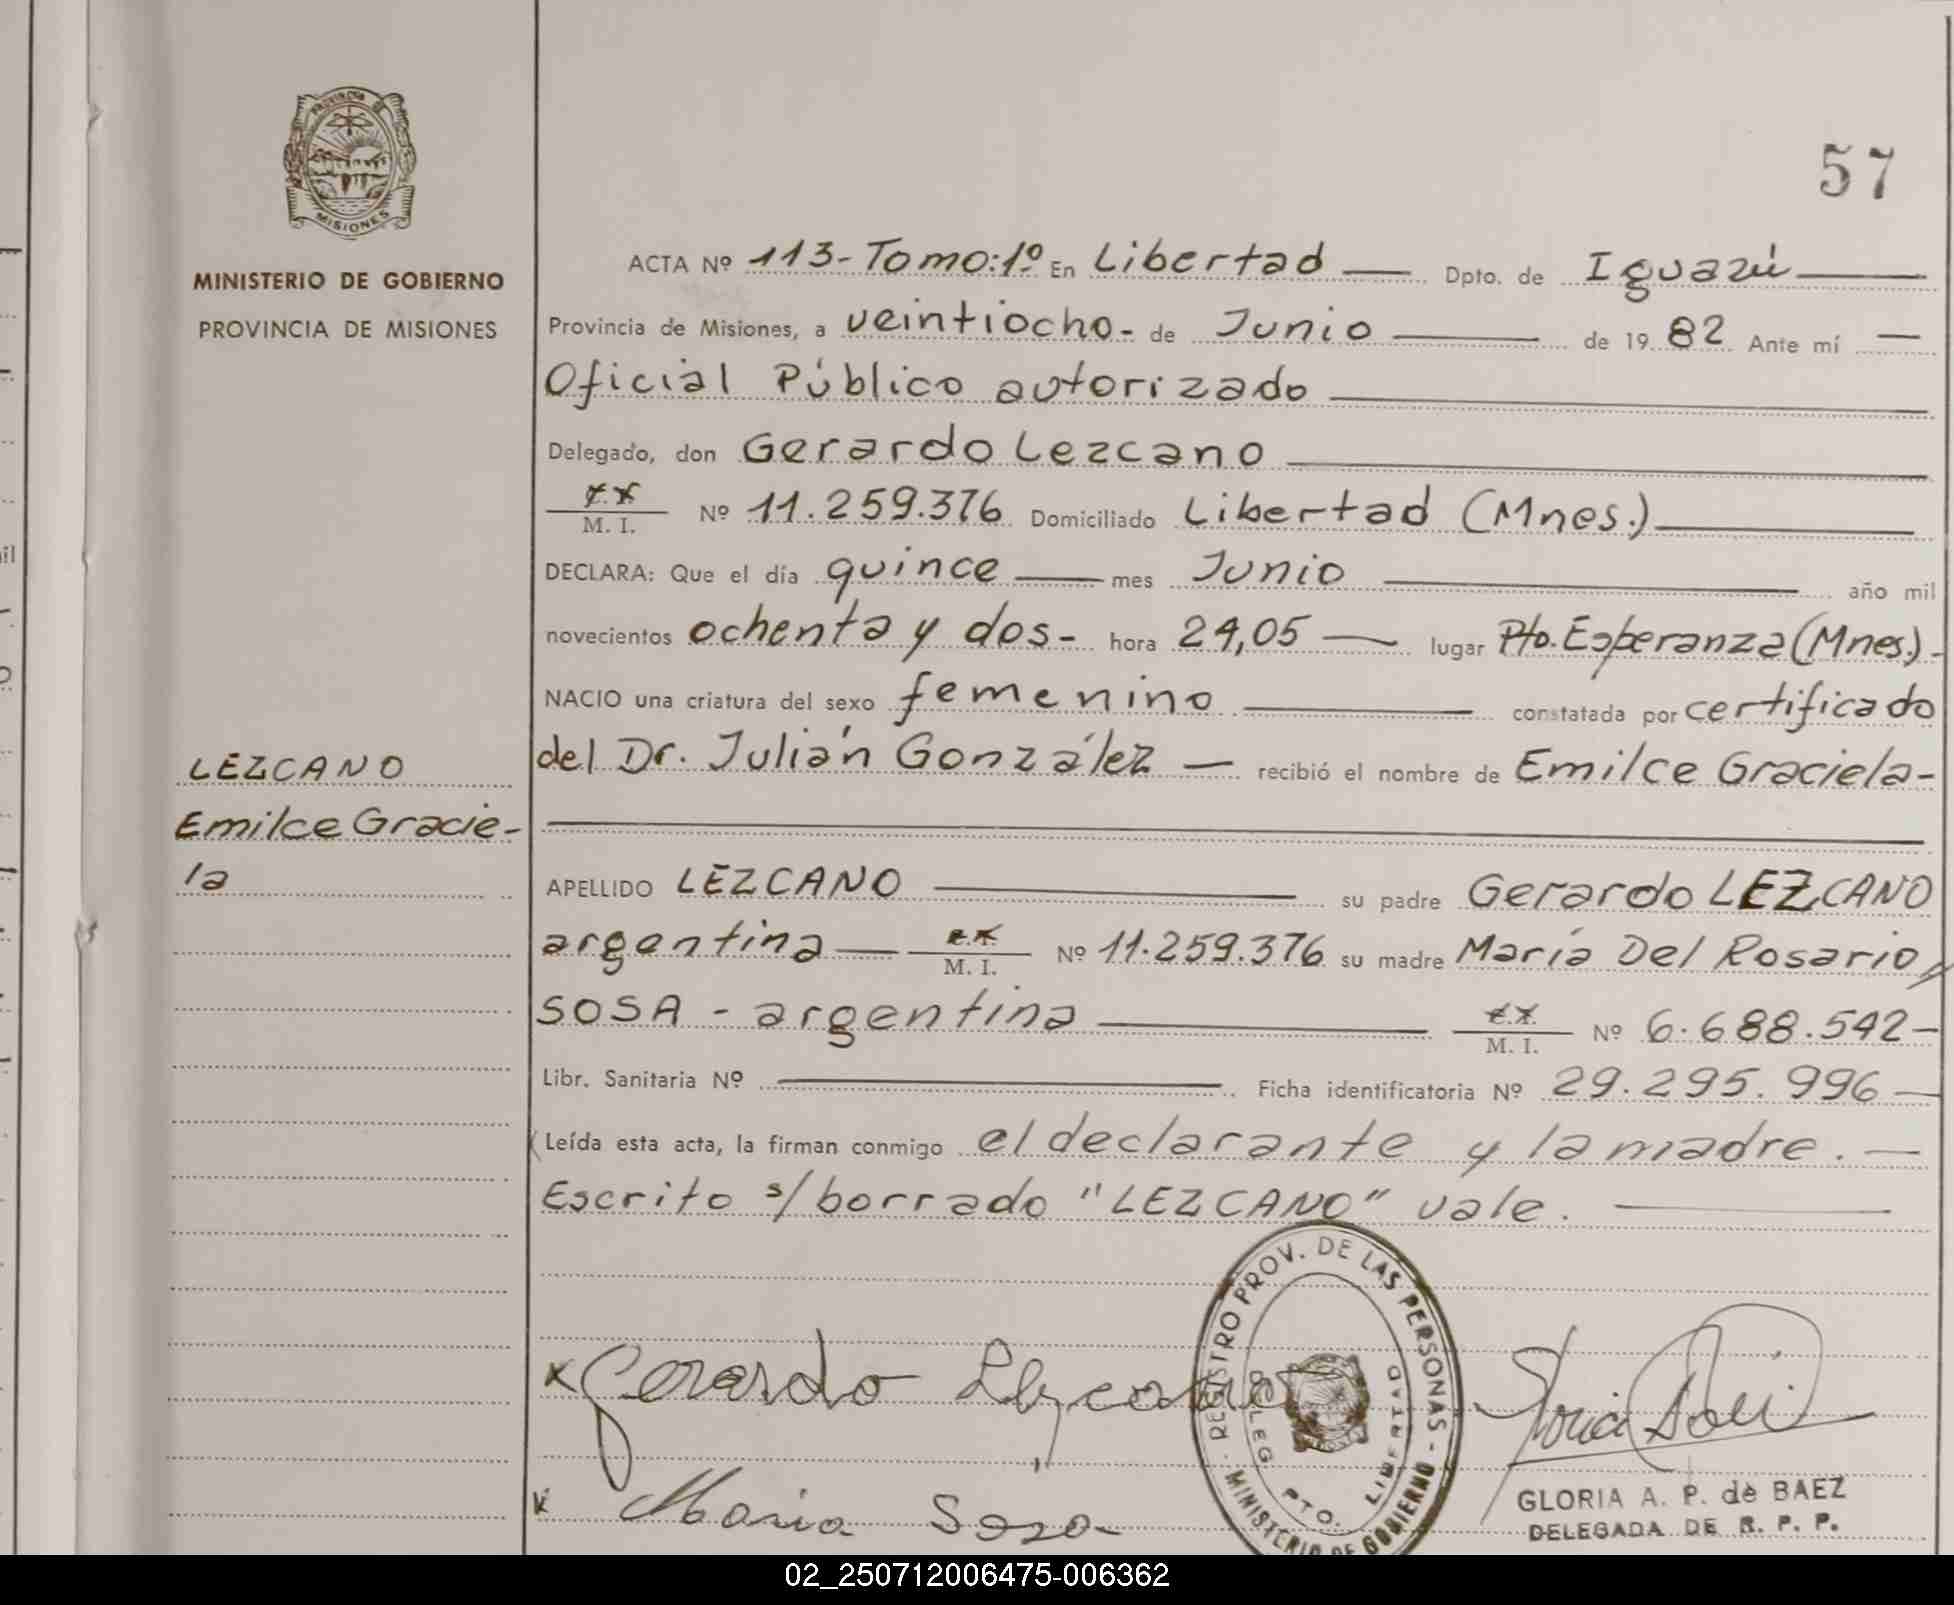 57
PROVINCIA DE
MISIONES
MINISTERIO DE GOBIERNO
PROVINCIA DE MISIONES
ACTA Nº 113-Tomo:1º En Libertad — Dpto. de Iguazú —
Provincia de Misiones, a veintiocho - de Junio — de 1982 Ante mí —
Oficial Público autorizado —
Delegado, don Gerardo Lezcano —
M. I. Nº 11.259.376 Domiciliado Libertad (Mnes.) —
DECLARA: Que el día quince — mes Junio — año mil
novecientos ochenta y dos - hora 24,05 — lugar Pto. Esperanza (Mnes.) -
NACIO una criatura del sexo femenino — constatada por certificado
del Dr. Julián González — recibió el nombre de Emilce Graciela-
LEZCANO
Emilce Gracie-
la
APELLIDO LEZCANO — su padre Gerardo LEZCANO
argentina — M. I. Nº 11.259.376 su madre María Del Rosario
SOSA - argentina — M. I. Nº 6.688.542-
Libr. Sanitaria Nº — Ficha identificatoria Nº 29.295.996 —
Leída esta acta, la firman conmigo el declarante y la madre. —
Escrito s/borrado "LEZCANO" vale. —
Gerardo Lezcano
Maria Sosa
REGISTRO PROV. DE LAS PERSONAS - MINISTERIO DE GOBIERNO
DELEG. PTO. LIBERTAD
GLORIA A. P. de BAEZ
DELEGADA DE R. P. P.
02_250712006475-006362